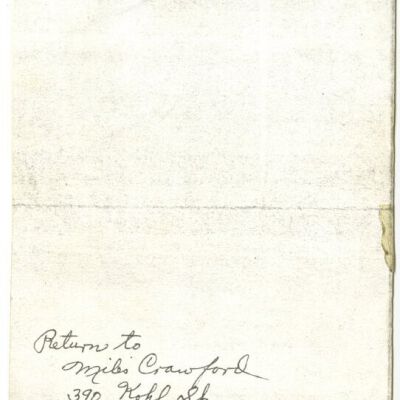 Return to
Miles Crawford
390 Kohl St.